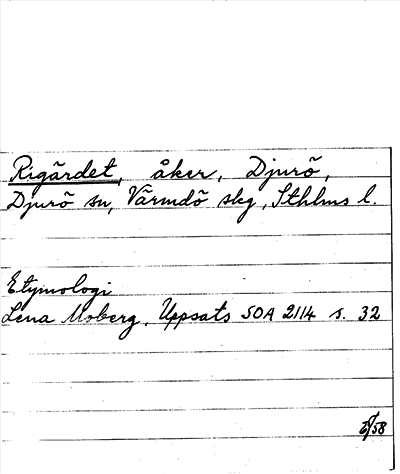 Rigärdet, åker, Djurö,
Djurö sn, Värmdö skg, Sthlms l.
Etymologi
Lena Moberg, Uppsats SOA 2114 s. 32